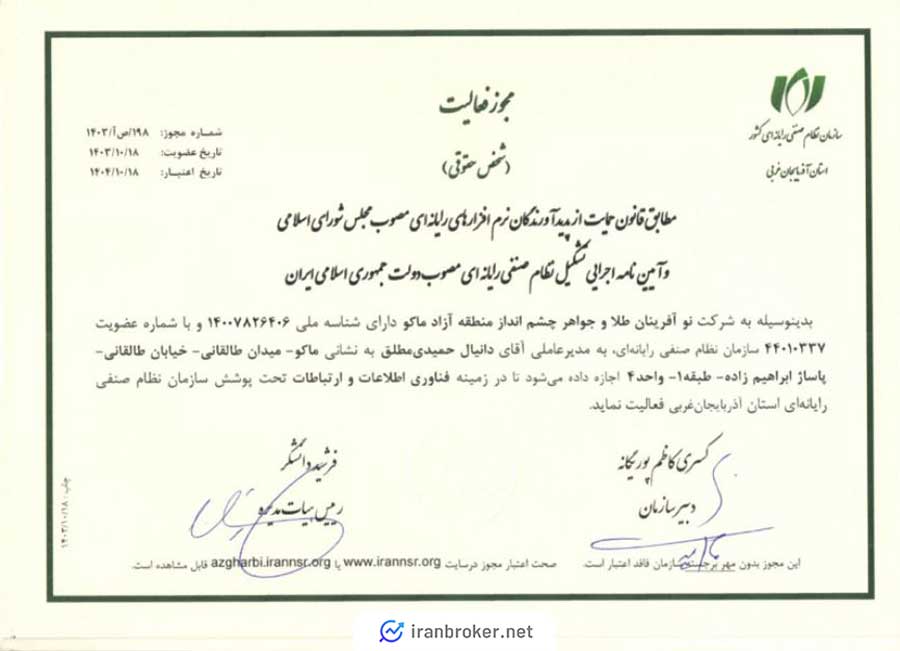 سازمان نظام صنفی رایانه ای کشور
استان آذربایجان غربی
مجوز فعالیت
(شخص حقوقی)
شماره مجوز: ۱۹۸/ص/آ/۱۴۰۳
تاریخ عضویت: ۱۴۰۳/۱۰/۱۸
تاریخ اعتبار: ۱۴۰۴/۱۰/۱۸
مطابق قانون حمایت از پدیدآورندگان نرم افزارهای رایانه ای مصوب مجلس شورای اسلامی
و آیین نامه اجرایی تشکیل نظام صنفی رایانه ای مصوب دولت جمهوری اسلامی ایران
بدینوسیله به شرکت نو آفرینان طلا و جواهر چشم انداز منطقه آزاد ماکو دارای شناسه ملی ۱۴۰۰۷۸۲۶۴۰۶ و با شماره عضویت
۴۴۰۱۰۳۳۷ سازمان نظام صنفی رایانه‌ای، به مدیرعاملی آقای دانیال حمیدی‌مطلق به نشانی ماکو- میدان طالقانی- خیابان طالقانی-
پاساژ ابراهیم زاده- طبقه۱- واحد۴ اجازه داده می‌شود تا در زمینه فناوری اطلاعات و ارتباطات تحت پوشش سازمان نظام صنفی
رایانه‌ای استان آذربایجان‌غربی فعالیت نماید.
کسری کاظم پور یگانه
دبیر سازمان
فرشید دانشگر
رییس هیات مدیره
چاپ: ۱۴۰۳/۱۰/۱۸
این مجوز بدون مهر برجسته سازمان فاقد اعتبار است.
صحت اعتبار مجوز درسایت www.irannsr.org یا azgharbi.irannsr.org قابل مشاهده است.
iranbroker.net